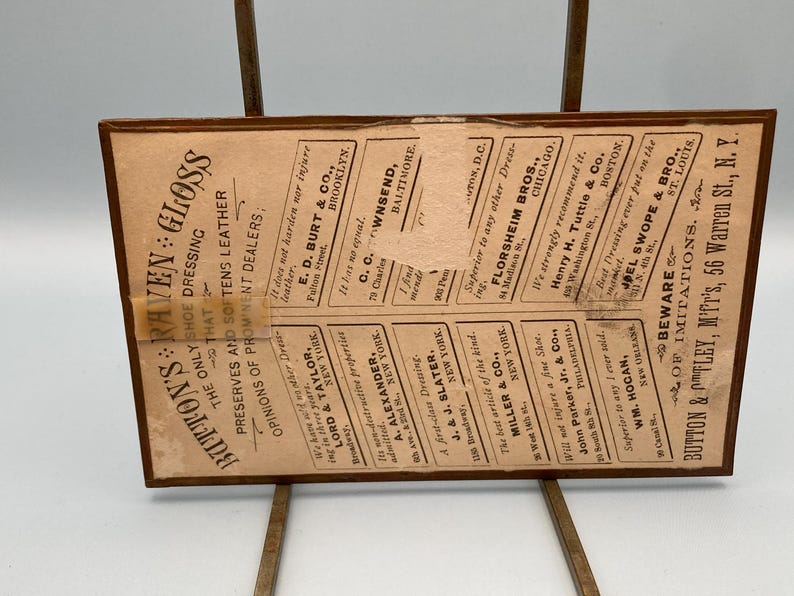 BUTTON'S RAVEN GLOSS
THE ONLY SHOE DRESSING
THAT
PRESERVES AND SOFTENS LEATHER
OPINIONS OF PROMINENT DEALERS;
We have sold no other Dress-
ing in three years.
LORD & TAYLOR,
Broadway, NEW YORK.
Its non-destructive properties
admitted.
A. ALEXANDER,
6th Ave. & 23rd St., NEW YORK.
A first-class Dressing.
J. & J. SLATER,
1185 Broadway, NEW YORK.
The best article of the kind.
MILLER & CO.,
26 West 14th St., NEW YORK.
Will not injure a fine Shoe.
John Parker, Jr. & Co.,
20 South 8th St., PHILADELPHIA.
Superior to any I ever sold.
WM. HOGAN,
99 Canal St., NEW ORLEANS.
It does not harden nor injure
leather.
E. D. BURT & CO.,
Fulton Street, BROOKLYN.
It has no equal.
C. C. WNSEND,
79 Charles BALTIMORE.
I find
mende
903 Penn TON, D.C.
Superior to any other Dress-
ing,
FLORSHEIM BROS.,
84 Madison St., CHICAGO.
We strongly recommend it.
Henry H. Tuttle & Co.
435 Washington St., BOSTON.
Best Dressing ever put on the
market.
JOEL SWOPE & BRO.,
311 N. 4th St., ST. LOUIS.
BEWARE
OF IMITATIONS.
BUTTON & OTTLEY, M'f'r's, 56 Warren St., N. Y.